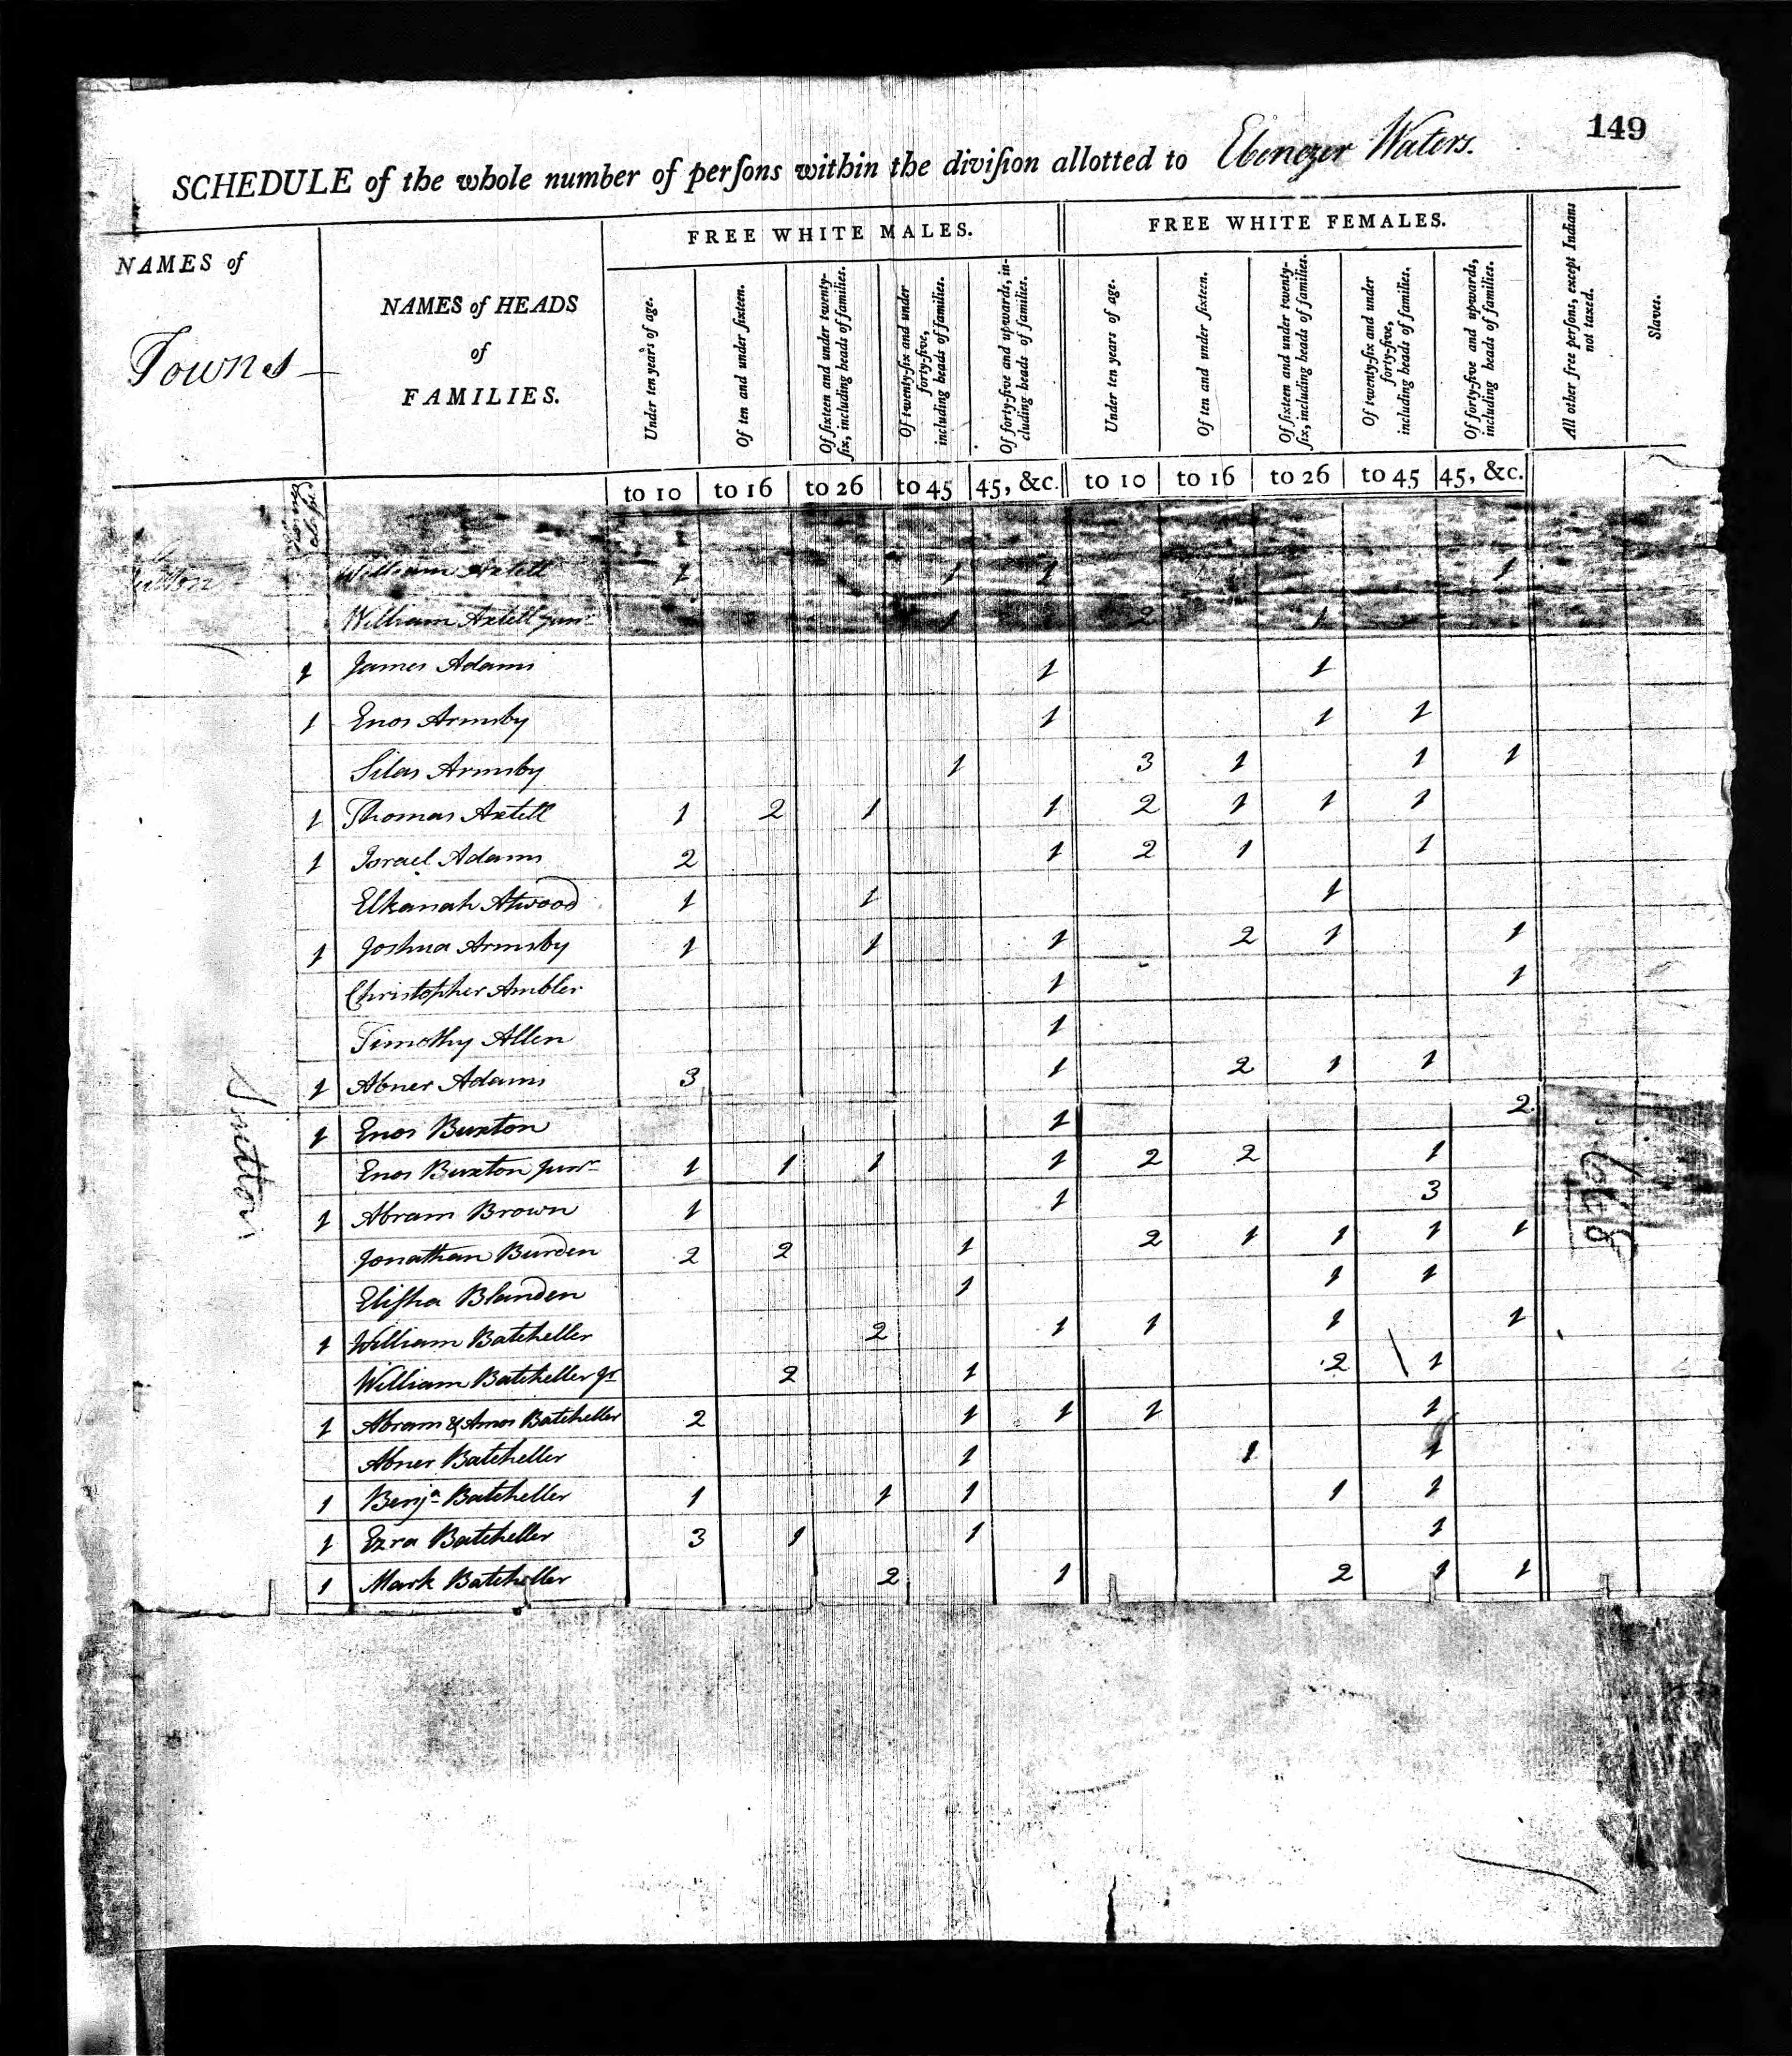 149
SCHEDULE of the whole number of perſons within the diviſion allotted to Ebenezer Waters.
NAMES of
Towns
NAMES of HEADS
of
FAMILIES.
FREE WHITE MALES.
FREE WHITE FEMALES.
Under ten years of age.
Of ten and under ſixteen.
Of ſixteen and under twenty-ſix, including heads of families.
Of twenty-ſix and under forty-five, including heads of families.
Of forty-five and upwards, including heads of families.
Under ten years of age.
Of ten and under ſixteen.
Of ſixteen and under twenty-ſix, including heads of families.
Of twenty-ſix and under forty-five, including heads of families.
Of forty-five and upwards, including heads of families.
All other free perſons, except Indians not taxed.
Slaves.
to 10 to 16 to 26 to 45 45, &c. to 10 to 16 to 26 to 45 45, &c.
William Axtell 1 1 1 1
William Axtell Junr 1 2 1
1 James Adams 1 1
1 Enos Armsby 1 1 1
Silas Armsby 1 3 1 1 1
1 Thomas Axtell 1 2 1 1 2 1 1 1
1 Israel Adams 2 1 2 1 1
Elkanah Atwood 1 1 1
1 Joshua Armsby 1 1 1 2 1 1
Christopher Ambler 1 1
Timothy Allen 1
1 Abner Adams 3 1 2 1 1
1 Enos Buxton 1 2
Enos Buxton Junr 1 1 1 1 2 2 1
1 Abram Brown 1 1 3
Jonathan Burden 2 2 1 2 1 1 1 1
Eliſha Blanden 1 1 1
1 William Batcheller 2 1 1 1 1
William Batcheller Jr 2 1 2 1
1 Abram & Amos Batcheller 2 1 1 1 1
Abner Batcheller 1 1 1
1 Benja Batcheller 1 1 1 1 1
1 Ezra Batcheller 3 1 1 1
1 Mark Batcheller 2 1 2 1 1
Sutton